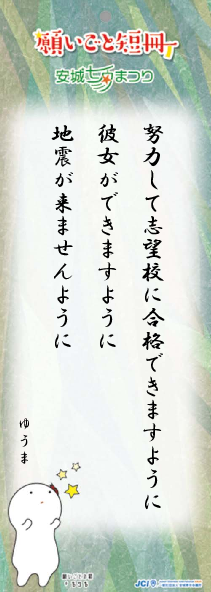 願いごと短冊
安城七夕まつり
努力して志望校に合格できますように
彼女ができますように
地震が来ませんように
ゆうま
JCI